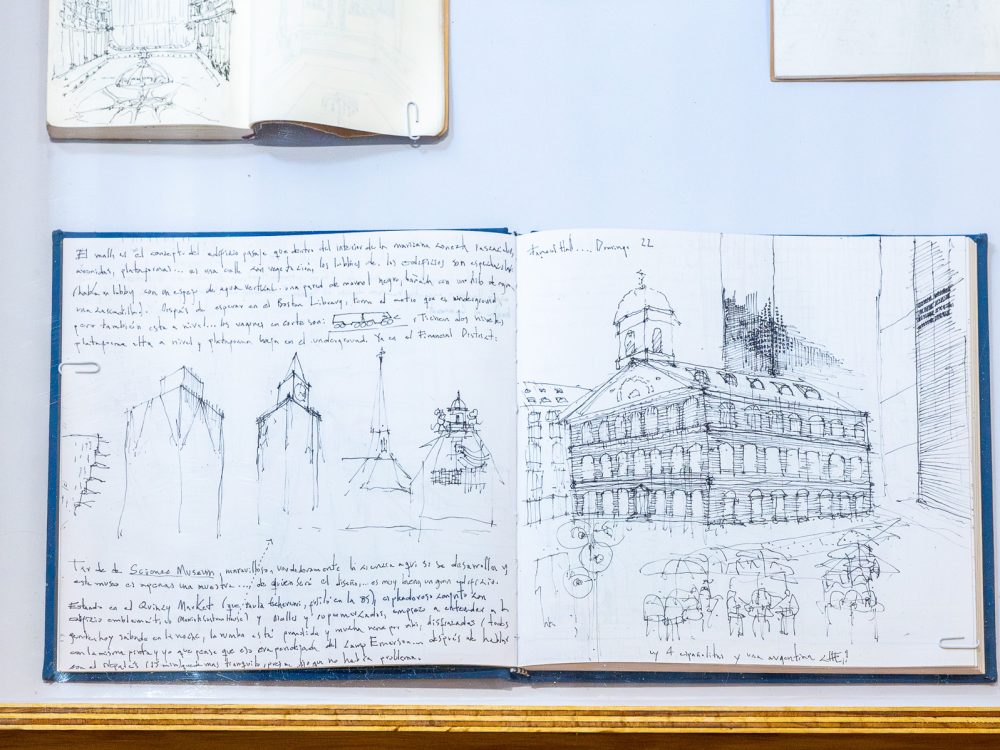 El mall es el concepto del edificio pasaje que dentro del interior de la manzana conecta
avenidas, plataformas... es una calle sin vegetación, los lobbies de los edificios son espectaculares
lobby con un espejo de agua vertical. una pared de marmol negro, bañada con un hilo de agua
una cascadita). Después de esperar en el Boston Library, tomo el metro que es underground,
pero también esta a nivel... los vagones en corte son: (Tienen dos niveles
plataforma alta a nivel y plataforma baja en el underground. Ya en el Financial District:
Tarde de Science Museum, maravilloso, verdaderamente la ciencia aquí si se desarrolla y
este museo es apenas una muestra... de quien será el diseño,... es muy bien, un gran edificio.
Estando en el Quincy Market (que, Paula Echeverri, estuvo en la BS), esplendoroso conjunto con
edificio emblemático y Malls y empezo a entender a la
gente, hoy sábado en la noche, la rumba esta prendida y mucha nena por ahi, disfrazadas (todas
con la misma pinta) y yo que pense que eso era pendejada del Camp Emerson... después de hablar
con el mas tranquilo, piensa que no habrá problema.
Faneuil Hall.... Domingo 22
y 4 españolitas y una argentina CHE!